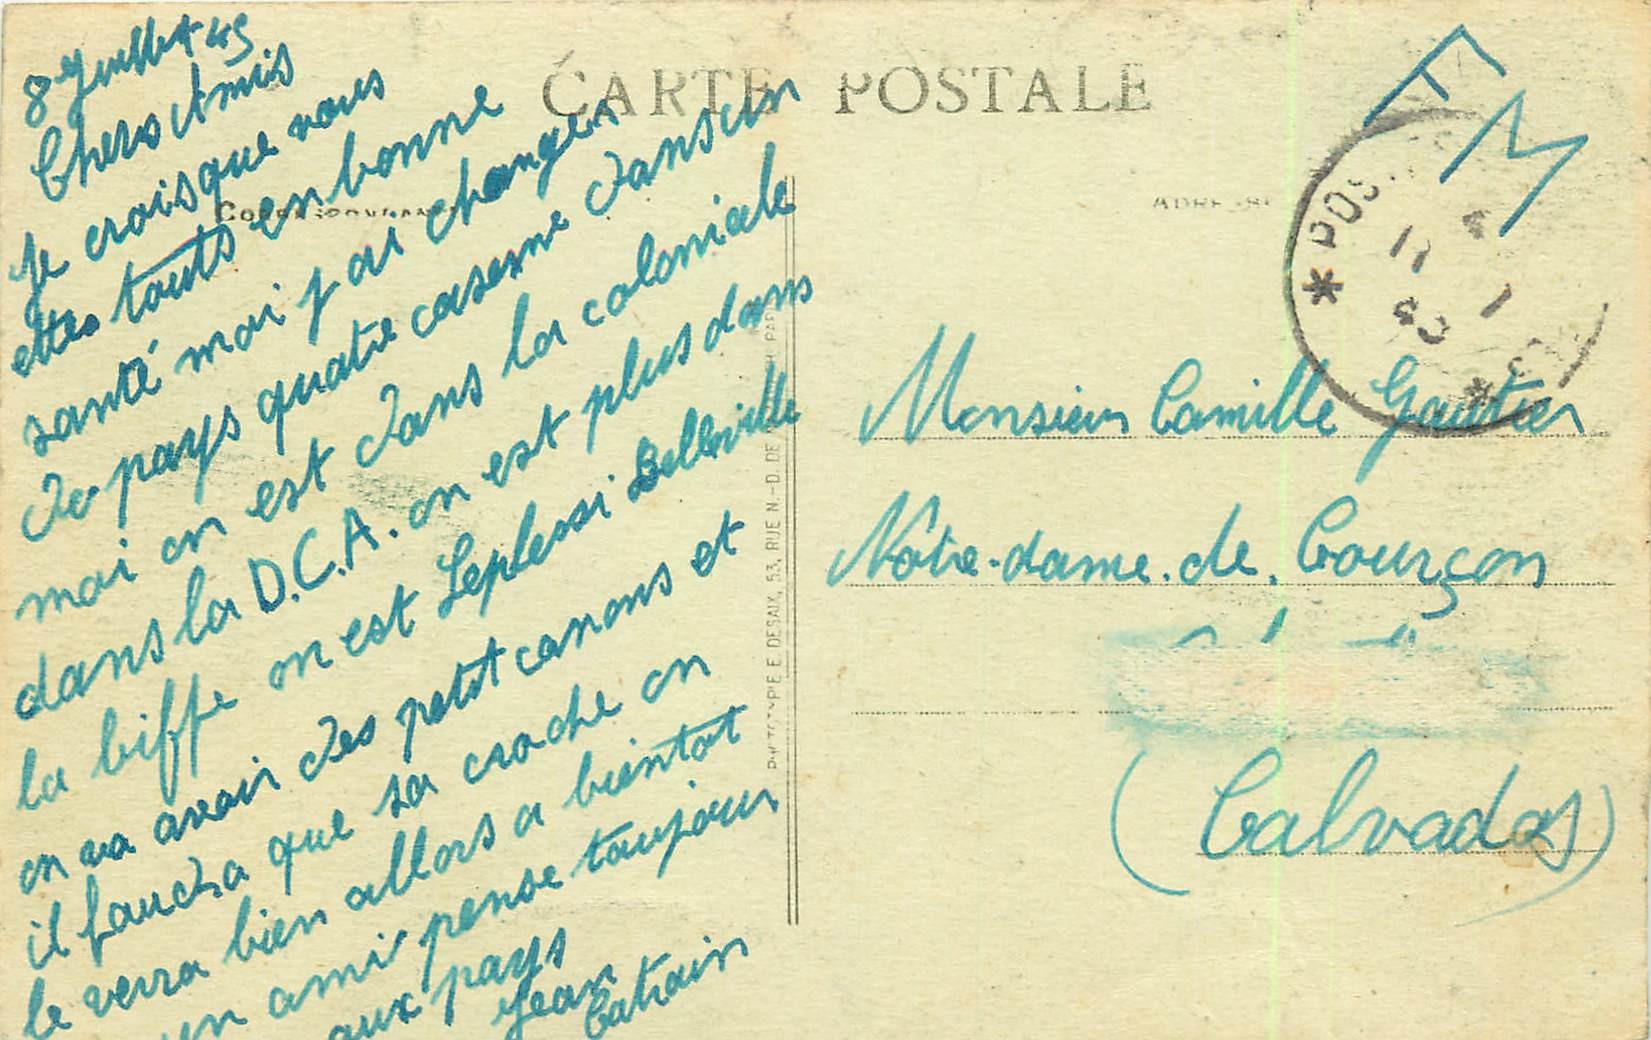 CARTE POSTALE
8 Juillet 45
Chers Amis
Je croisque vous
ettes touts en bonne
santé moi j ai changer
de pays quatre caserne dans un
moi on est dans la coloniale
dans la D.C.A. on est plus dans
la biffe on est Leplessi Belleville
on va avoir des petit canons et
il faudra que sa crache on
le verra bien allors a bientot
un ami pense toujour
aux pays
Jean
Catrain
FM
Monsieur Camille Gautier
Nôtre-dame.de.Courçon
(Calvados)